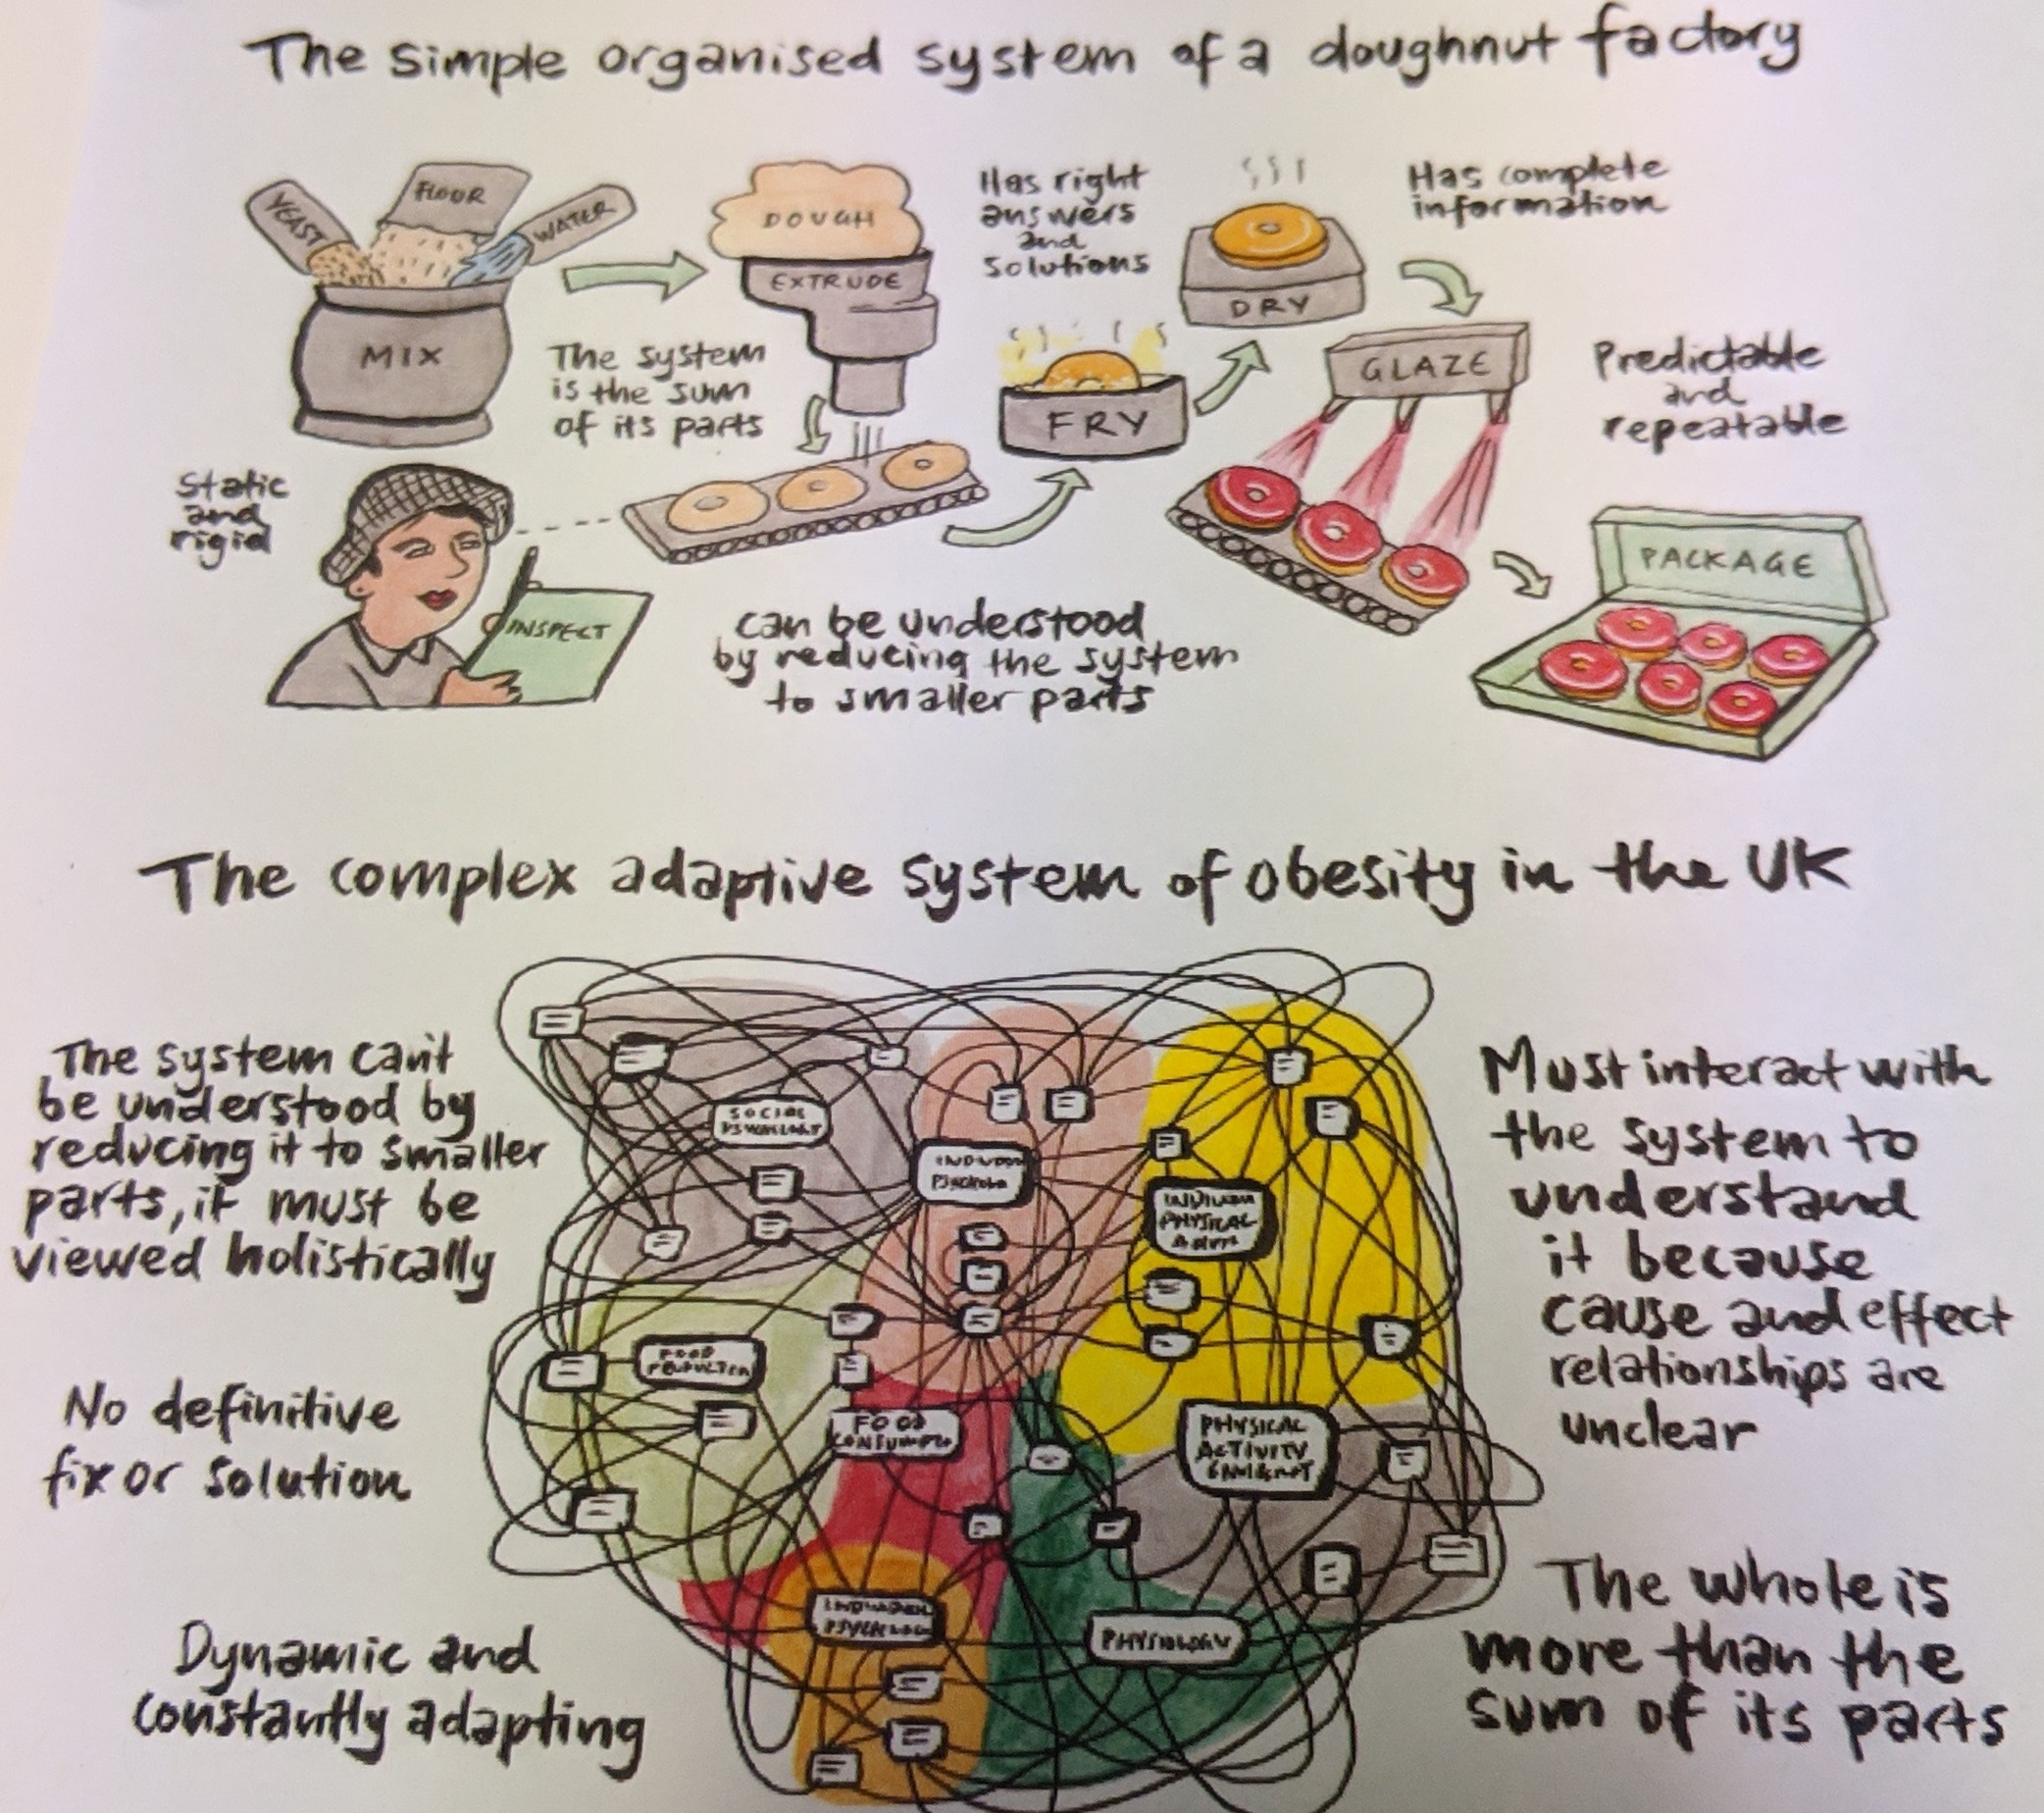 The simple organised system of a doughnut factory
YEAST
FLOUR
WATER
MIX
DOUGH
EXTRUDE
The system
is the sum
of its parts
Has right
answers
and
solutions
DRY
Has complete
information
FRY
GLAZE
Predictable
and
repeatable
Static
and
rigid
INSPECT
can be understood
by reducing the system
to smaller parts
PACKAGE
The complex adaptive system of obesity in the UK
The system can't
be understood by
reducing it to smaller
parts, it must be
viewed holistically
No definitive
fix or solution
Dynamic and
constantly adapting
SOCIAL
PHYSICAL
FOOD
FOOD
PHYSICAL
ACTIVITY
PHYSIOLOGY
Must interact with
the system to
understand
it because
cause and effect
relationships are
unclear
The whole is
more than the
sum of its parts